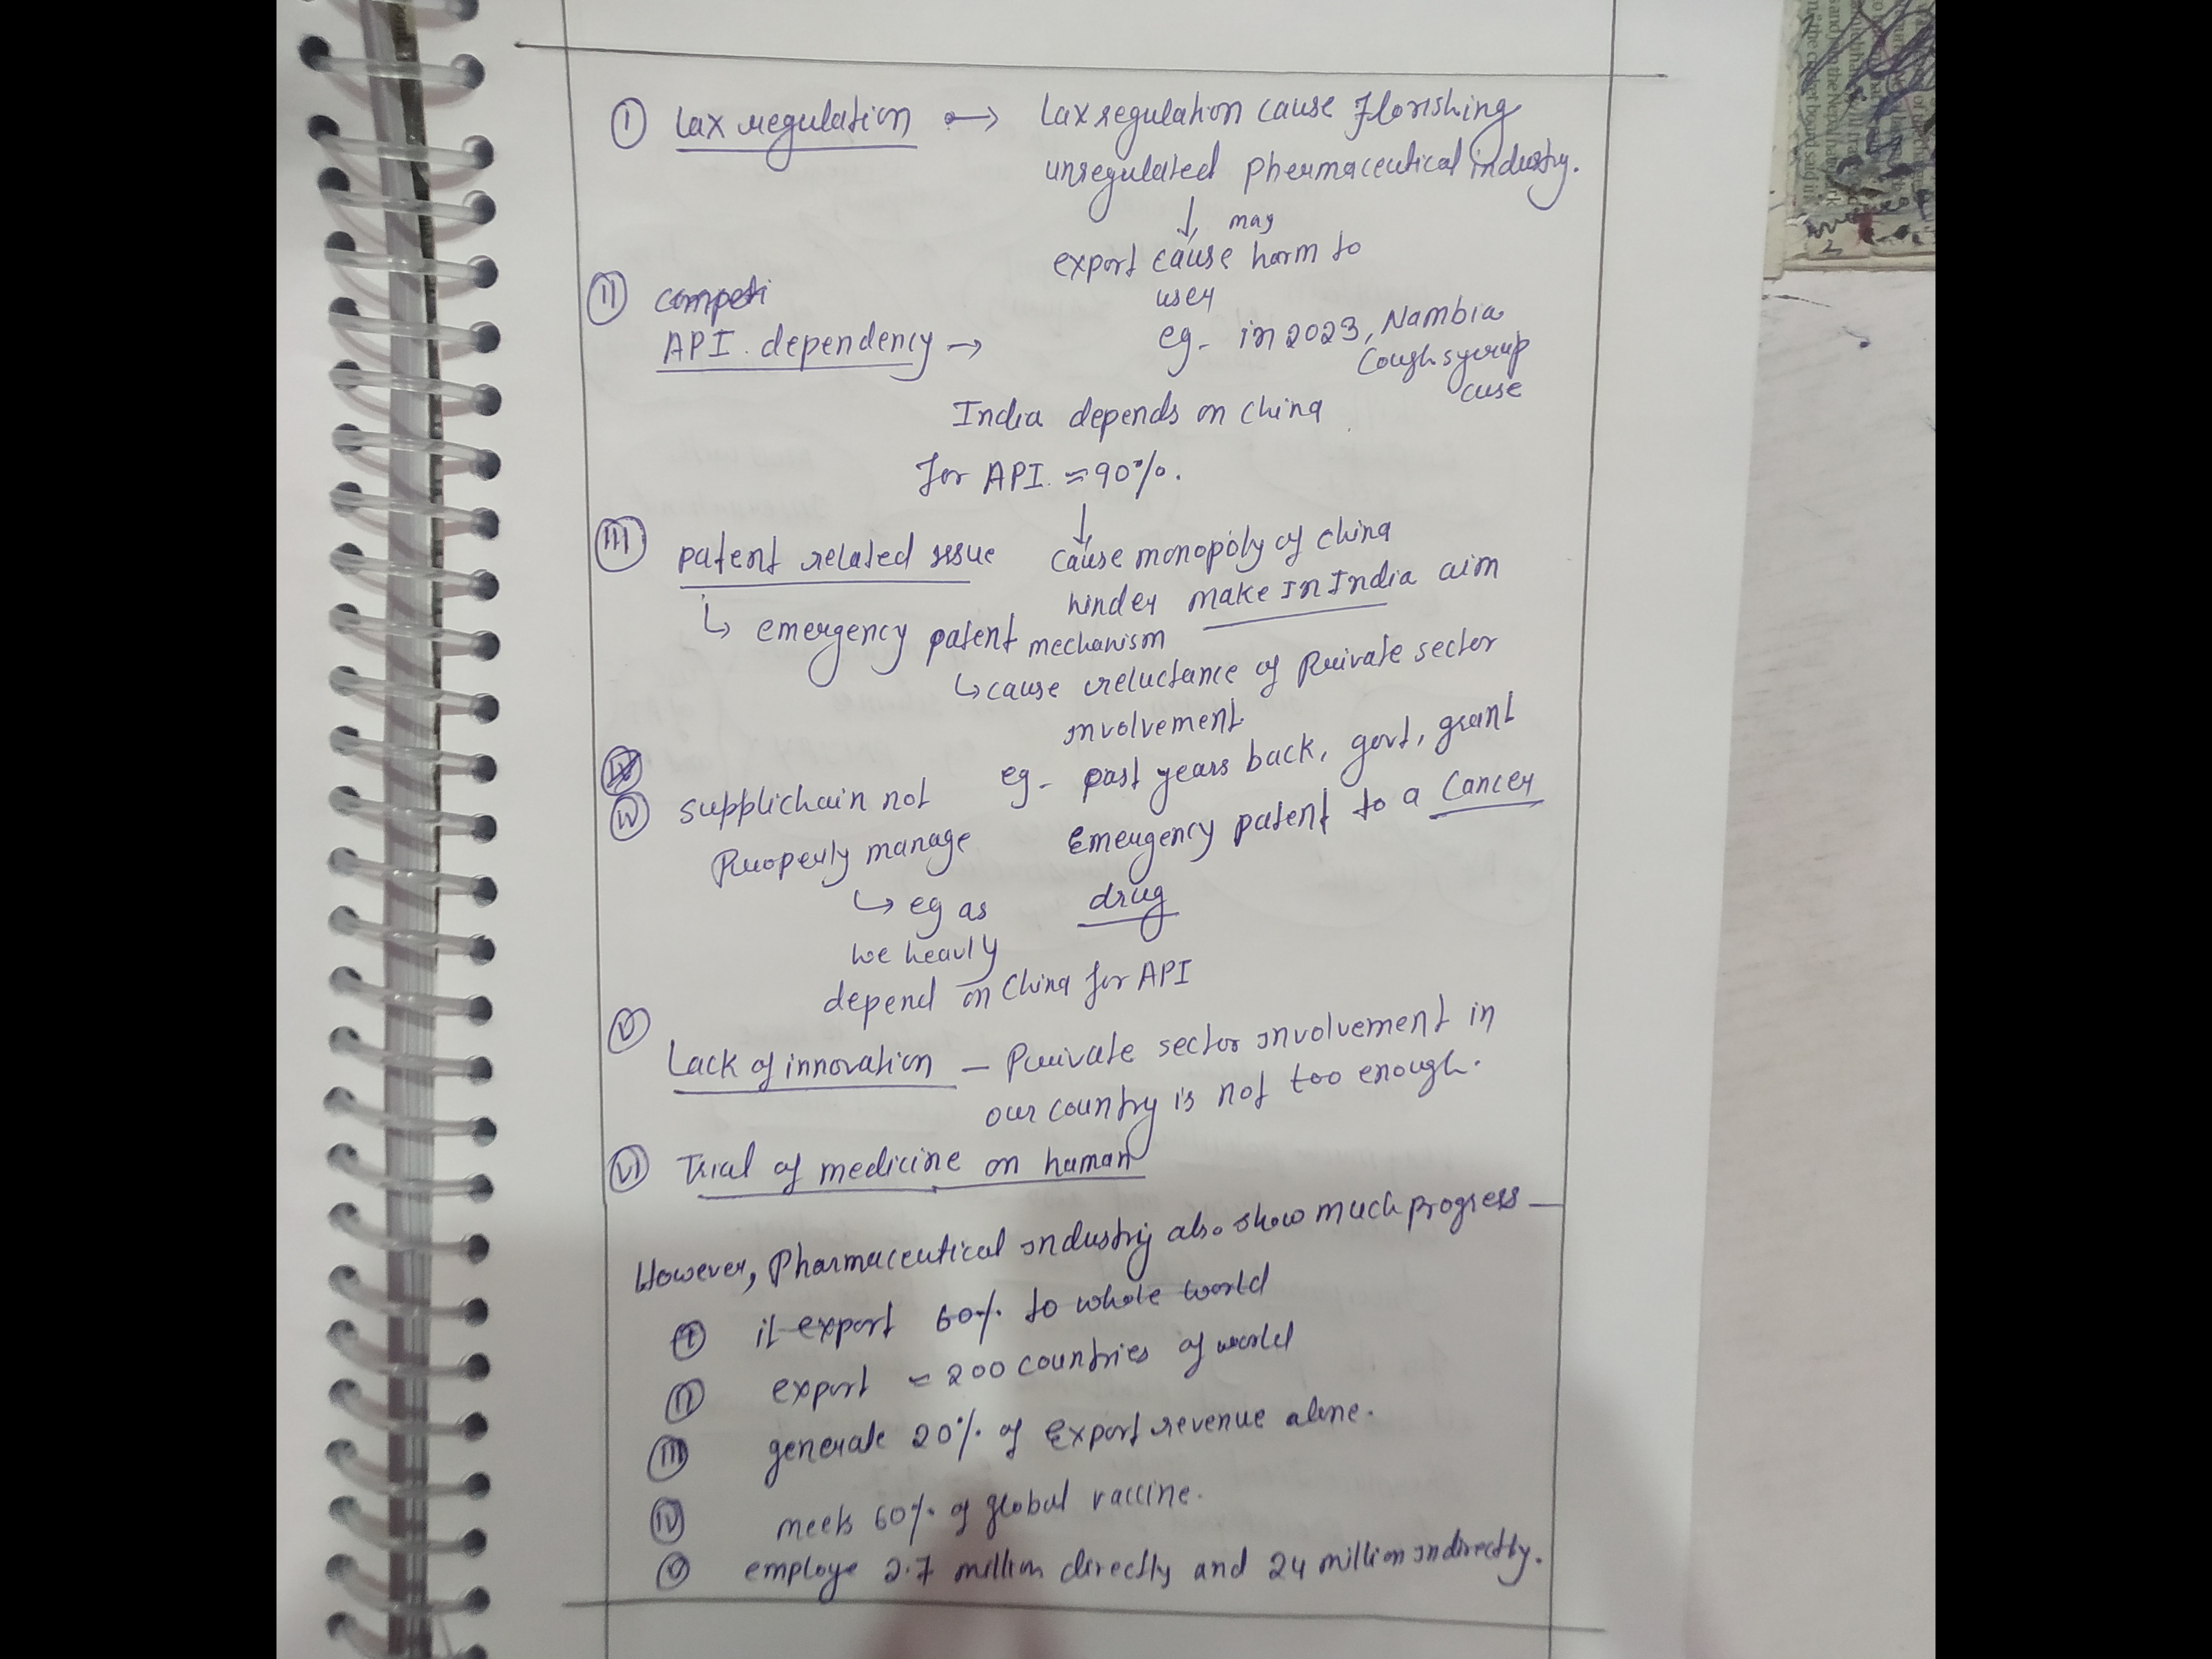 ① Lax regulation → Lax regulation cause florishing
unregulated phermaceutical industry.
↓
may
export cause harm to
user
eg- in 2023, Nambia
Cough syrup
case
② competi
API. dependency →
India depends on china
for API. ≈ 90%.
↓
cause monopoly of china
hinder make in India aim
③ patent related issue
↳ emergency patent mechanism
↳ cause reluctance of Private sector
involvement
eg- past years back, govt, grant
Emergency patent to a Cancer
drug
iv
④ supplichain not
Properly manage
↳ eg as
we heavly
depend on China for API
⑤ Lack of innovation — Private sector involvement in
our country is not too enough.
⑥ Trial of medicine on human
However, Pharmaceutical industry also show much progress —
① it export 60% to whole world
② export ≈ 200 countries of world
③ generate 20% of Export revenue alone.
④ meets 60% of global vaccine.
⑤ employe 2.7 million directly and 24 million indirectly.